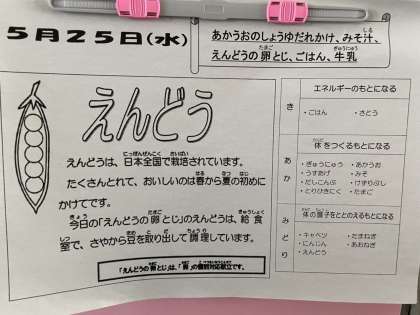 5月25日(水)
あかうおのしょうゆだれかけ、みそ汁、
えんどうの卵とじ、ごはん、牛乳
えんどう
えんどうは、日本全国で栽培されています。
たくさんとれて、おいしいのは春から夏の初めに
かけてです。
今日の「えんどうの卵とじ」のえんどうは、給食
室で、さやから豆を取り出して調理しています。
「えんどうの卵とじ」は、「卵」の個別対応献立です。
き
エネルギーのもとになる
・ごはん ・さとう
あか
体をつくるもとになる
・ぎゅうにゅう ・あかうお
・うすあげ ・みそ
・だしこんぶ ・けずりぶし
・とりひきにく ・たまご
みどり
体の調子をととのえるもとになる
・キャベツ ・たまねぎ
・にんじん ・あおねぎ
・えんどう